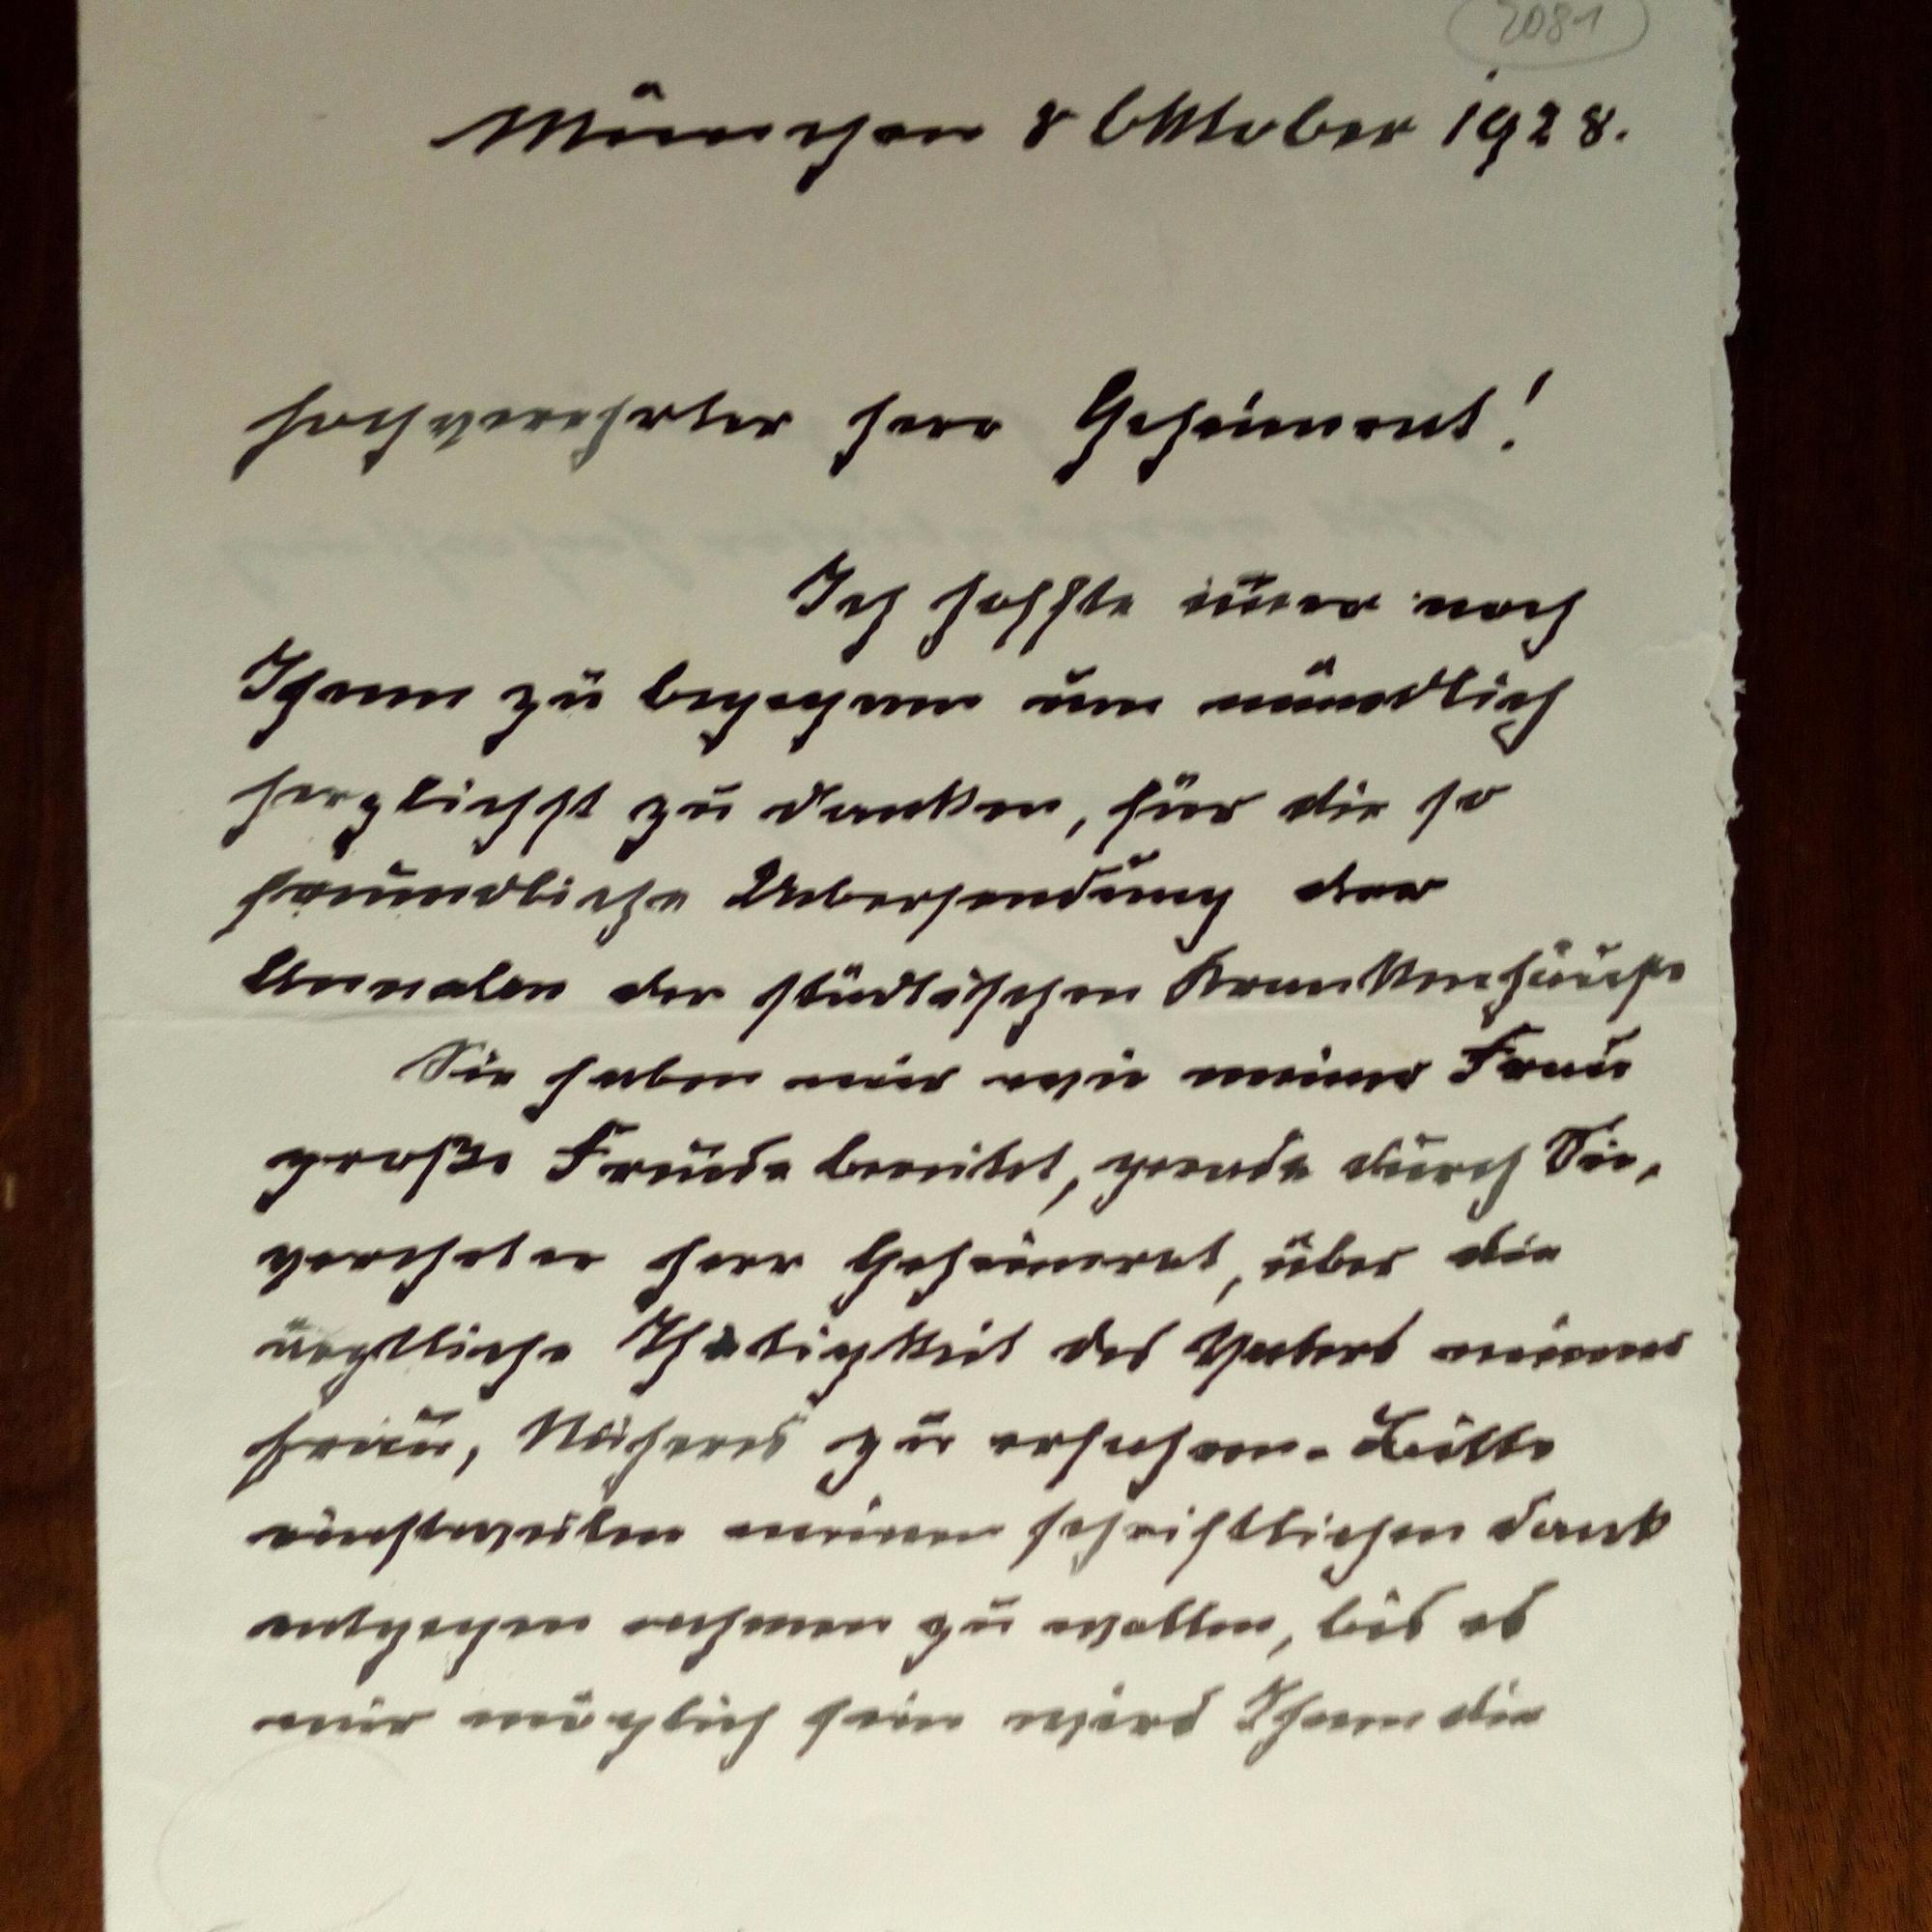 2081
München 8 Oktober 1928.
Hochverehrter Herr Geheimrat!
Ich hoffte im̅er noch
Ihnen zu begegnen um mündlich
herzlichst zu danken, für die so
freundliche Uebersendung der
Annalen der städtischen Krankenhäuser
Sie haben mir wie meiner Frau
große Freude bereitet, gerade durch Sie,
verehrter Herr Geheimrat, über die
ärztliche Thätigkeit des Vaters meiner
Frau, Näheres zu erfahren. Bitte
einstweilen meinen schriftlichen Dank
entgegen nehmen zu wollen, bis es
mir möglich sein wird Ihnen die